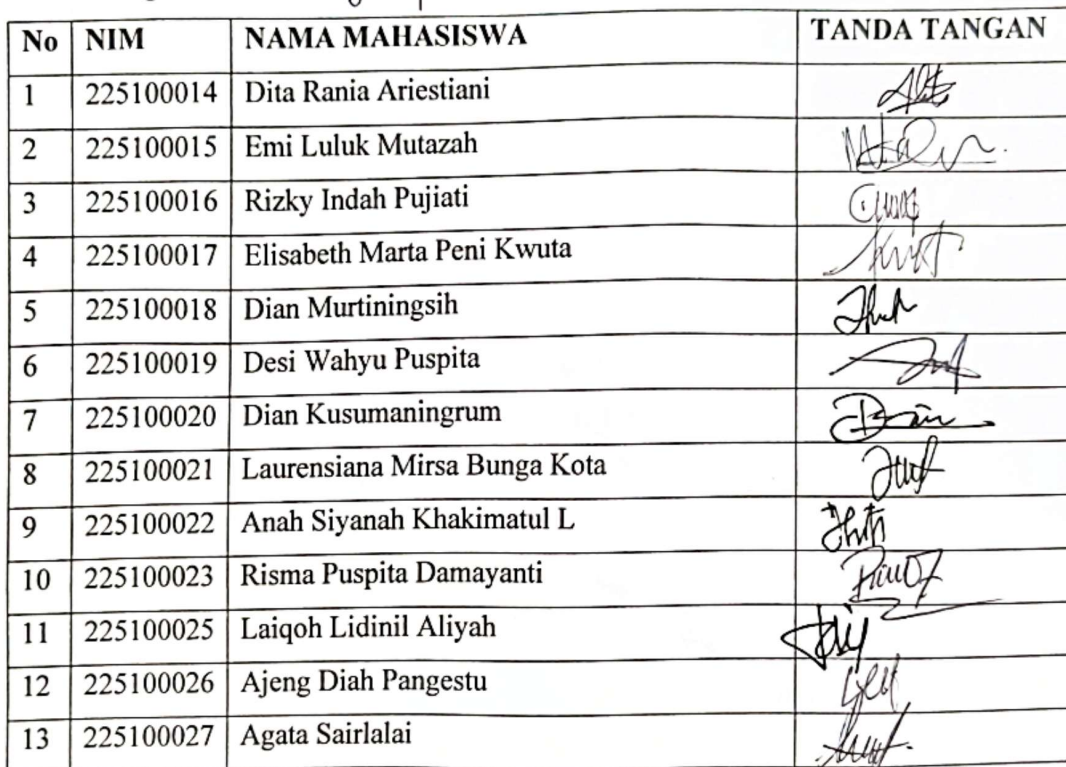 No NIM NAMA MAHASISWA TANDA TANGAN
1 225100014 Dita Rania Ariestiani
2 225100015 Emi Luluk Mutazah
3 225100016 Rizky Indah Pujiati
4 225100017 Elisabeth Marta Peni Kwuta
5 225100018 Dian Murtiningsih
6 225100019 Desi Wahyu Puspita
7 225100020 Dian Kusumaningrum
8 225100021 Laurensiana Mirsa Bunga Kota
9 225100022 Anah Siyanah Khakimatul L
10 225100023 Risma Puspita Damayanti
11 225100025 Laiqoh Lidinil Aliyah
12 225100026 Ajeng Diah Pangestu
13 225100027 Agata Sairlalai